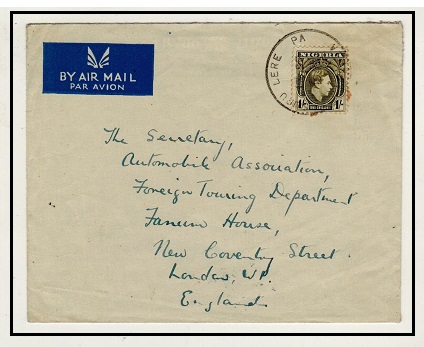 BY AIR MAIL
PAR AVION
LERE PA
NIGERIA
1/- 1/-
The Secretary,
Automobile Association,
Foreign Touring Department
Fanum House,
New Coventry Street
London, W1.
England